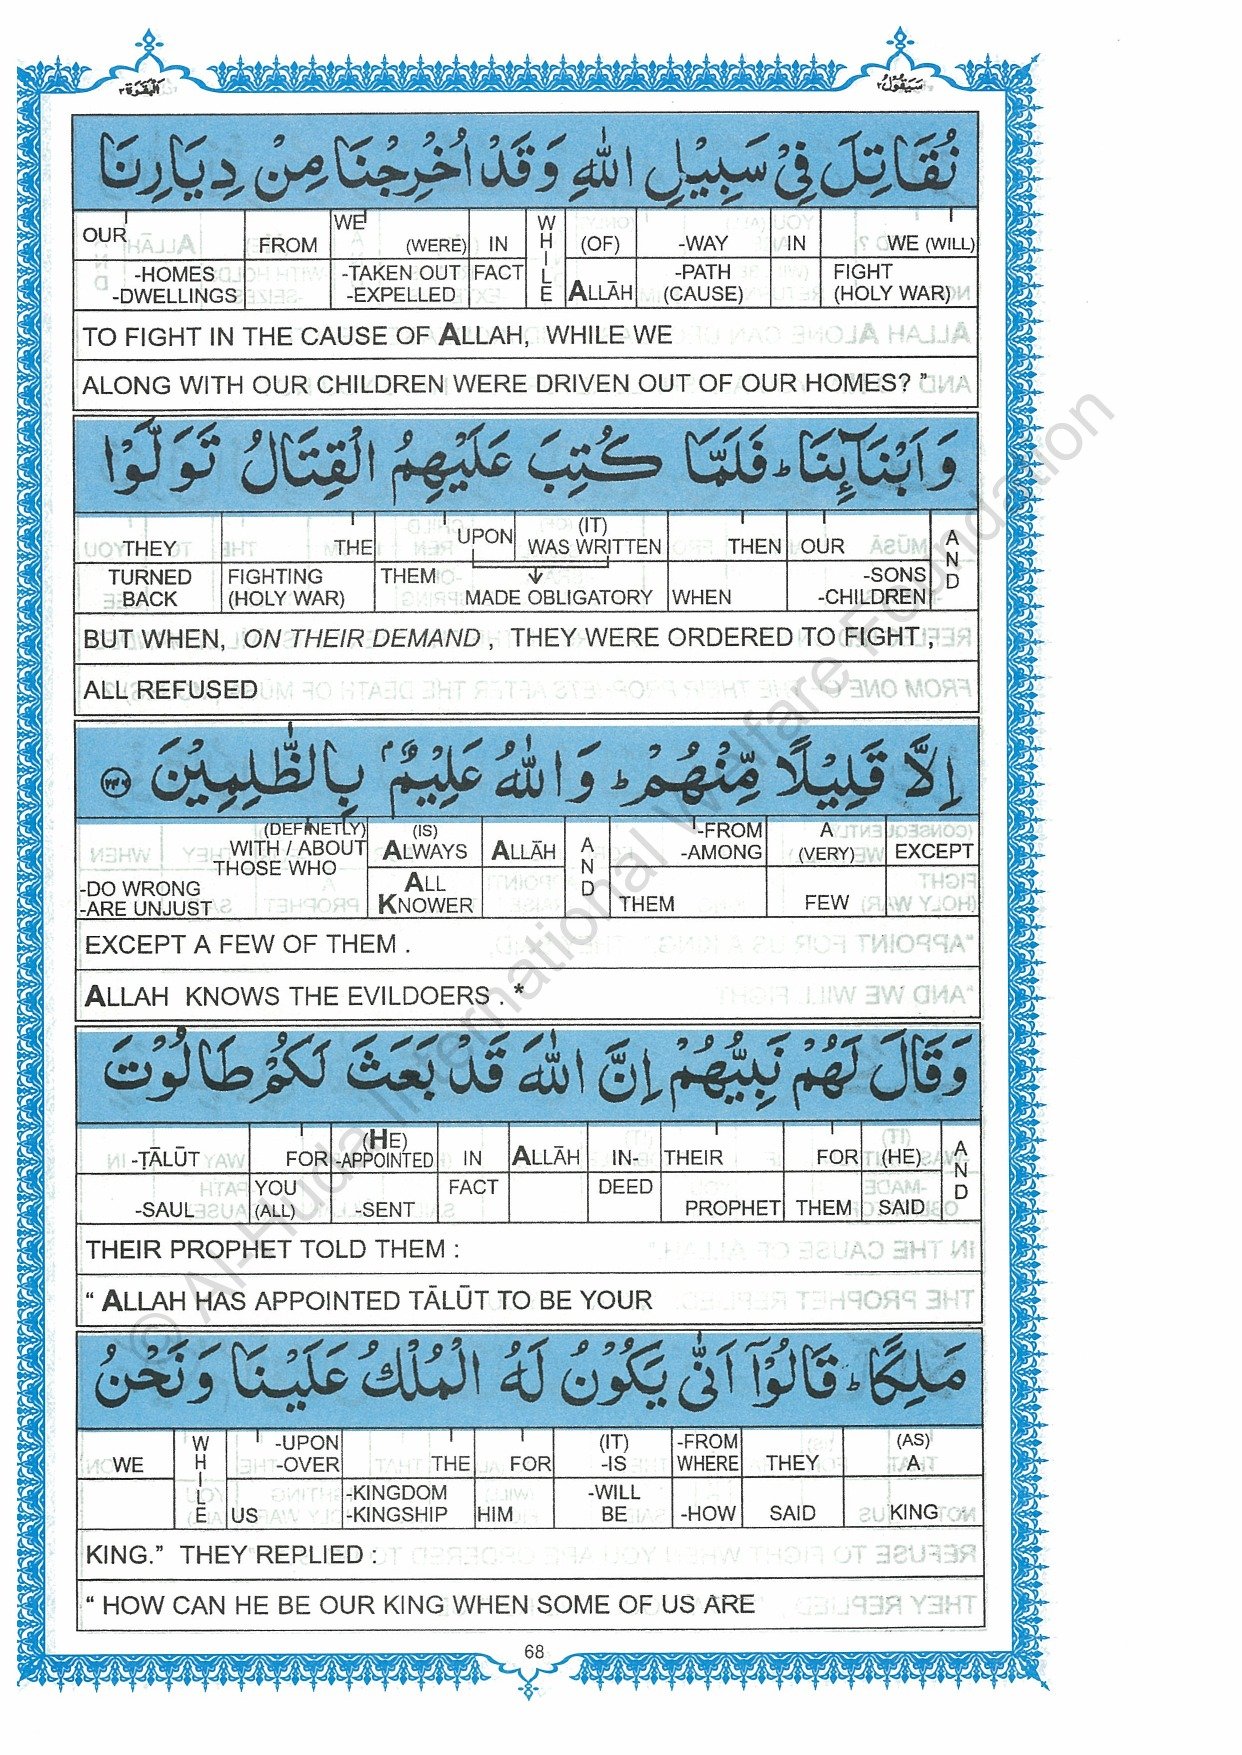 البقرة ٢
سيقول ٢
نُقَاتِلَ فِيْ سَبِيْلِ اللهِ وَقَدْ اُخْرِجْنَا مِنْ دِيَارِنَا
OUR FROM WE (WERE) IN WHILE (OF) -WAY IN WE (WILL)
-HOMES -TAKEN OUT FACT ALLĀH -PATH FIGHT
-DWELLINGS -EXPELLED (CAUSE) (HOLY WAR)
TO FIGHT IN THE CAUSE OF ALLAH, WHILE WE
ALONG WITH OUR CHILDREN WERE DRIVEN OUT OF OUR HOMES? ”
وَاَبْنَآئِنَا ؕ فَلَمَّا كُتِبَ عَلَيْهِمُ الْقِتَالُ تَوَلَّوْا
THEY THE UPON (IT) WAS WRITTEN THEN OUR AND
TURNED FIGHTING THEM MADE OBLIGATORY WHEN -SONS
BACK (HOLY WAR) -CHILDREN
BUT WHEN, ON THEIR DEMAND , THEY WERE ORDERED TO FIGHT ,
ALL REFUSED
اِلَّا قَلِيْلًا مِّنْهُمْ ؕ وَاللهُ عَلِيْمٌۢ بِالظّٰلِمِيْنَ ﴿٢٤٦﴾
(DEFINETLY) (IS) -FROM A
WITH / ABOUT ALWAYS ALLĀH AND -AMONG (VERY) EXCEPT
THOSE WHO
-DO WRONG ALL
-ARE UNJUST KNOWER THEM FEW
EXCEPT A FEW OF THEM .
ALLAH KNOWS THE EVILDOERS . *
وَقَالَ لَهُمْ نَبِيُّهُمْ اِنَّ اللهَ قَدْ بَعَثَ لَكُمْ طَالُوْتَ
-TĀLŪT FOR (HE) -APPOINTED IN ALLĀH IN- THEIR FOR (HE) AND
-SAUL YOU (ALL) -SENT FACT DEED PROPHET THEM SAID
THEIR PROPHET TOLD THEM :
“ ALLAH HAS APPOINTED TĀLŪT TO BE YOUR
مَلِكًا ؕ قَالُوْٓا اَنّٰى يَكُوْنُ لَهُ الْمُلْكُ عَلَيْنَا وَنَحْنُ
WE WHILE -UPON -OVER THE FOR (IT) -IS -FROM WHERE THEY (AS) A
US -KINGDOM -KINGSHIP HIM -WILL BE -HOW SAID KING
KING.” THEY REPLIED :
“ HOW CAN HE BE OUR KING WHEN SOME OF US ARE
68
© Al-Huda International Welfare Foundation